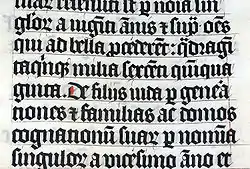 suar recensiti st p noīa sin
glor a uiginti annis & sup oēs
qui ad bella pcederēt: qͥdragīn
taqͥnqꝫ milia sexcenti quinqua
ginta. De filiis iuda p genera
tiones & familias ac domos
cognationū suar p nomīa
singulor a vicesimo āno et